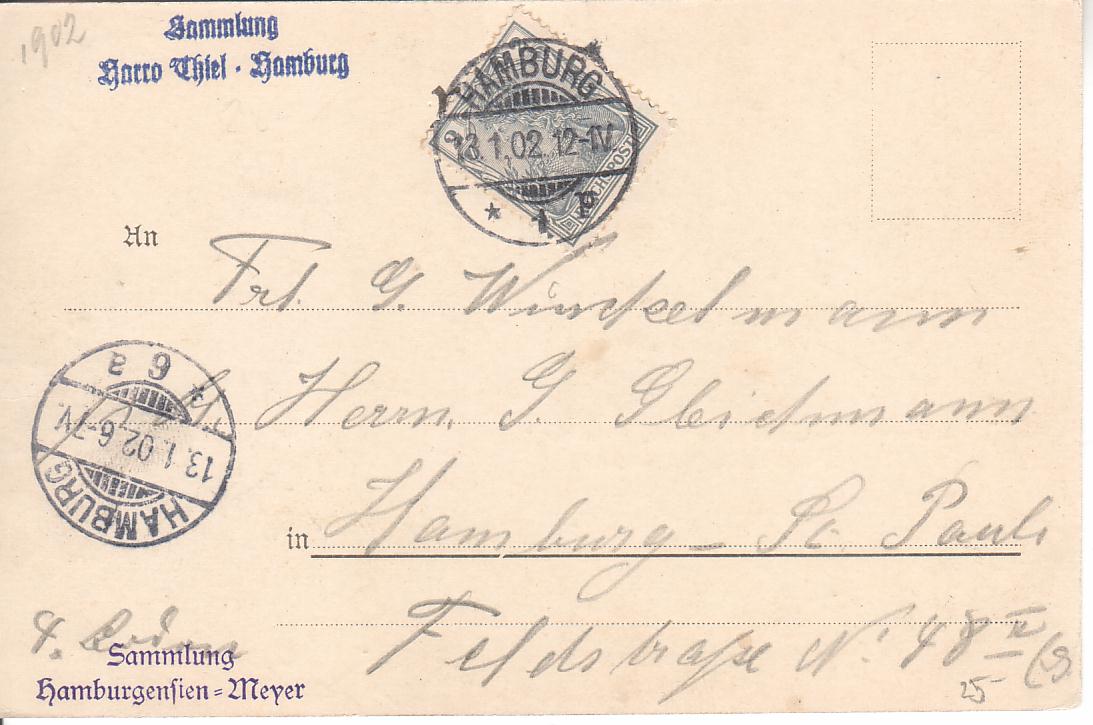 1902
Sammlung
Harro Thiel · Hamburg
HAMBURG
13.1.02. 12-1V.
* 1 P
REICHSPOST
An
Frl. G. Winckelmann
Herrn. G. Gleichmann
in Hamburg - St. Pauli
Feldstraße No. 48 II
HAMBURG
13.1.02.6-7V.
* 6 a
Sammlung
Hamburgensien=Meyer
25-